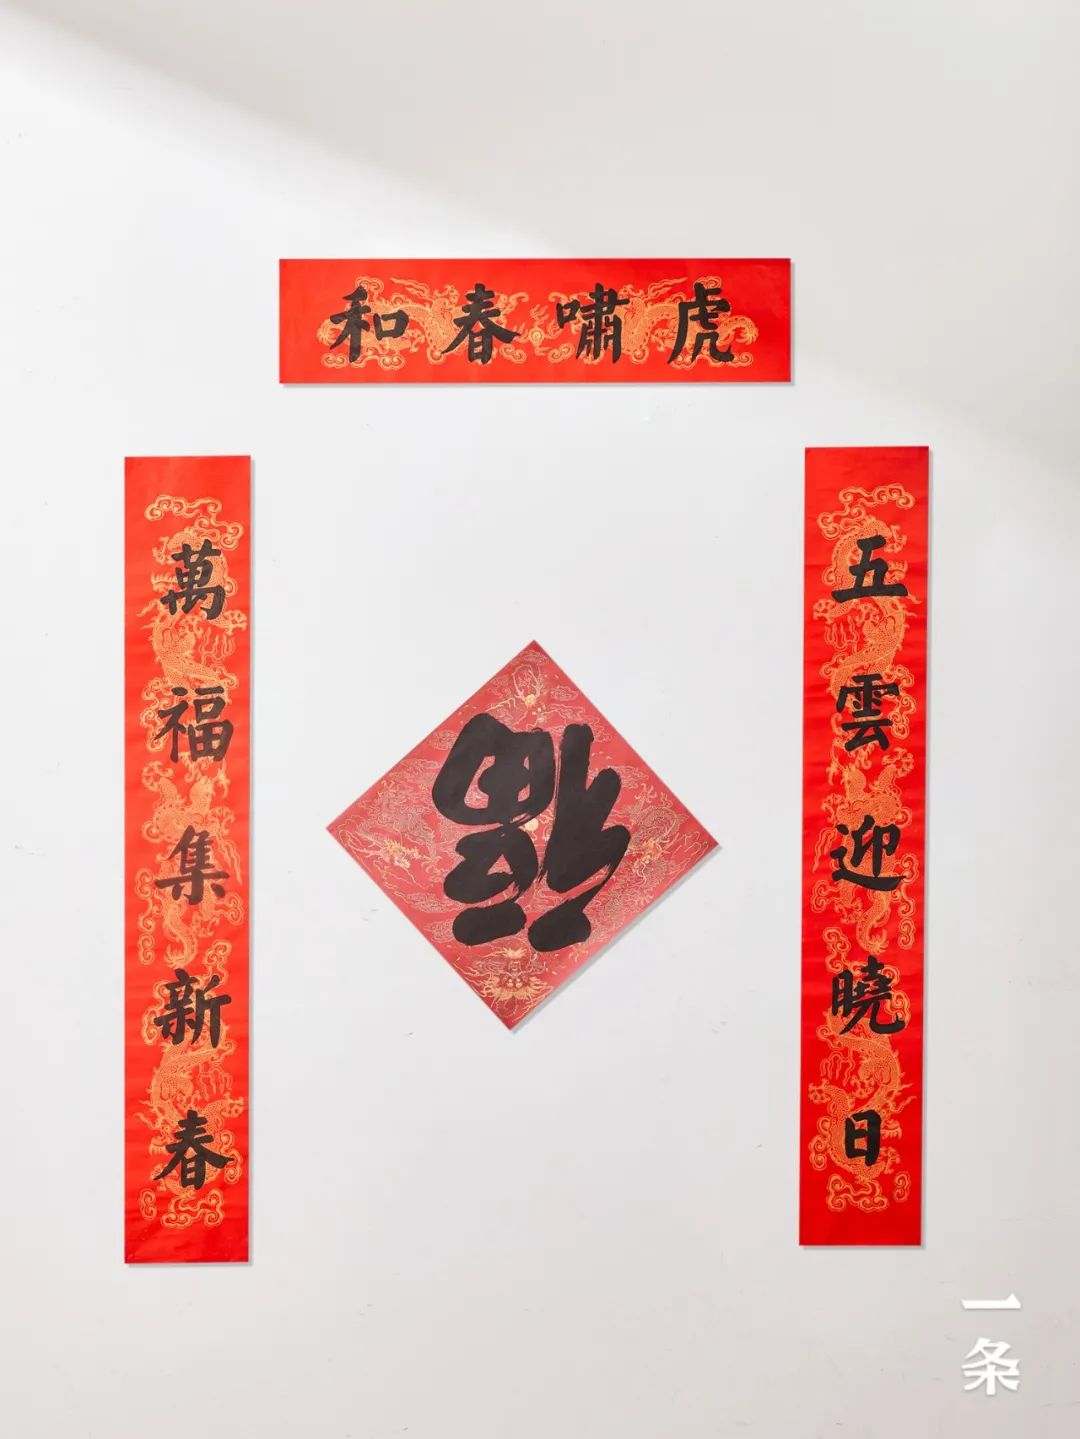 虎嘯春和
五雲迎曉日
萬福集新春
福
一条